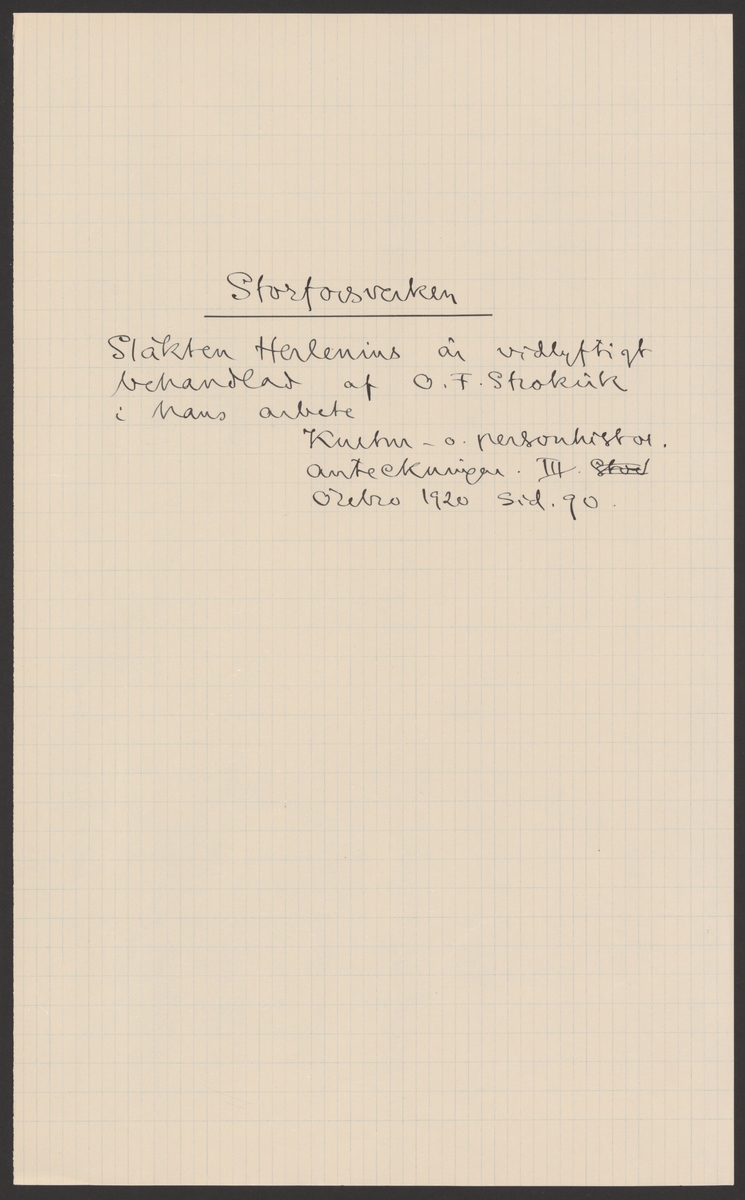 Storforsverken
Släkten Herlenius är vidlyftigt
behandlad af O. F. Strokirk
i hans arbete
Kultur- o. personhistor.
anteckningar. III.
Örebro 1920 sid. 90.